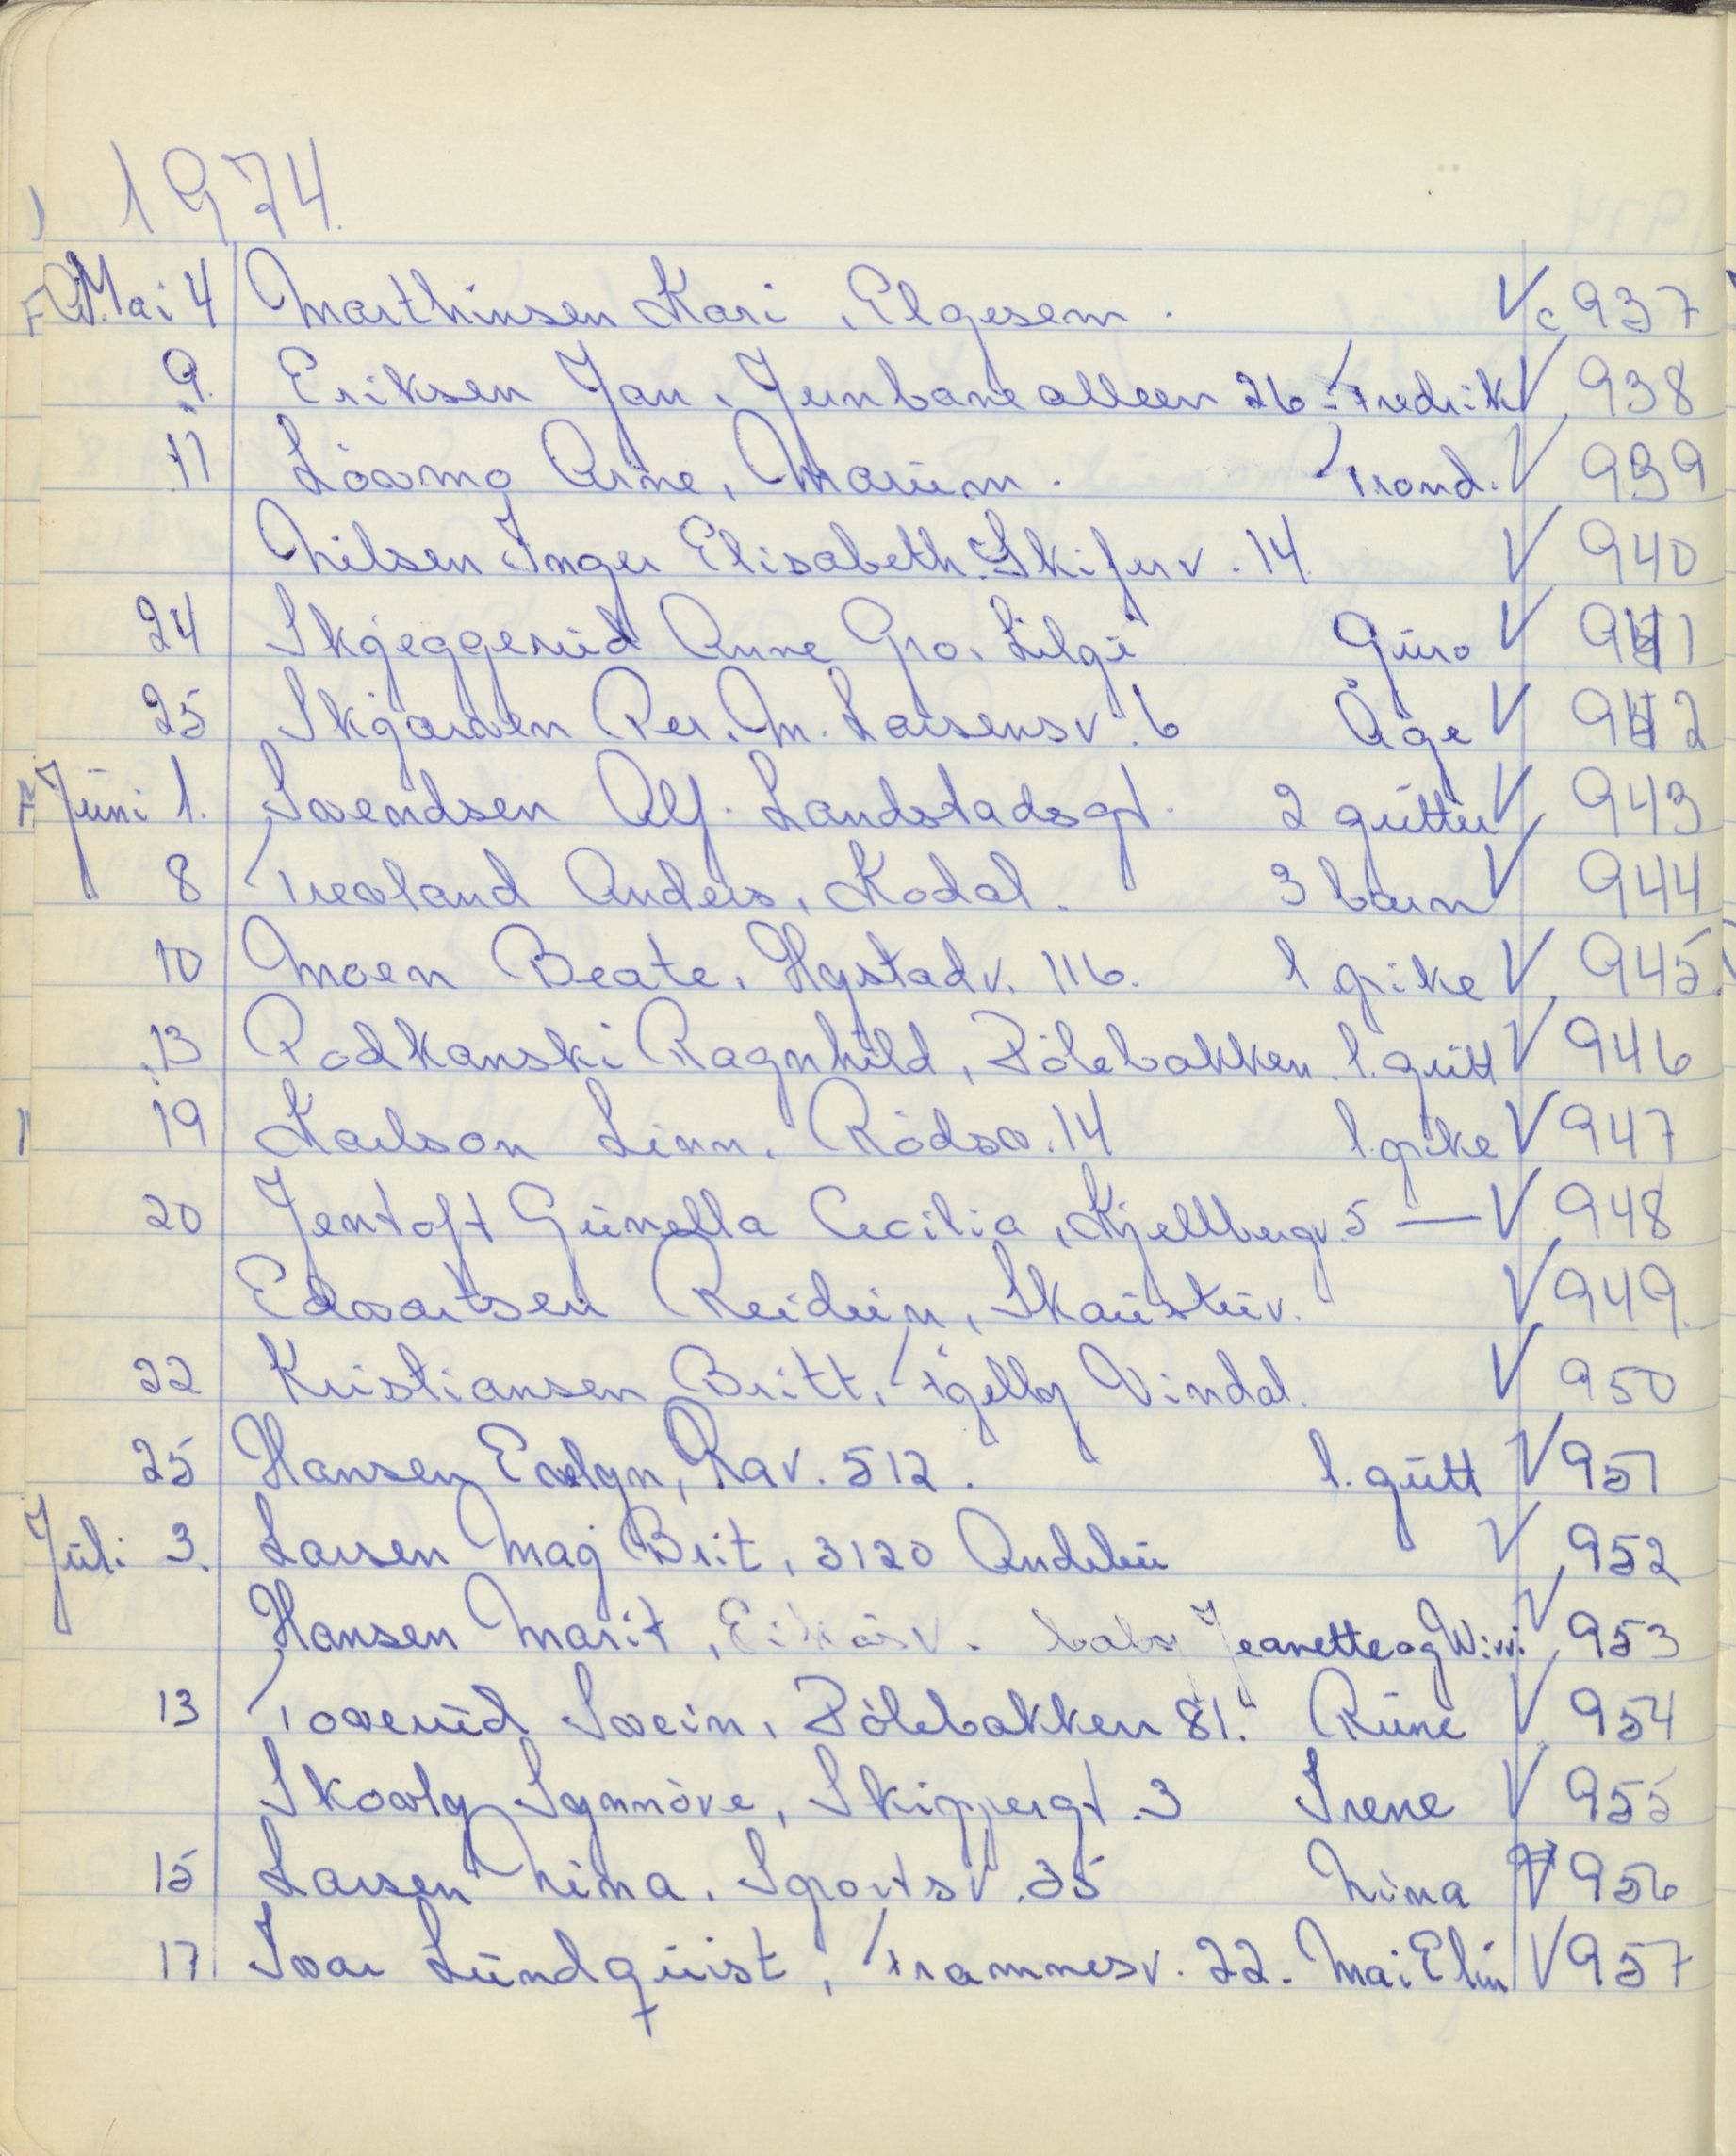 1974.
Mai 4 Marthinsen Kari, Elgesem. V 937
9. Eriksen Jan, Jernbanealleen 26. Fredrik V 938
11 Lövmo Arne, Marum. Trond. V 939
Nilsen Inger Elisabeth. Skiferv. 14 V 940
24 Skjeggerud Anne Gro. Lilgt Guro V 941
25 Skjarven Per. M. Larsensv. 6 Åge V 942
Juni 1. Svendsen Alf. Landstadsgt. 2 gutter V 943
8 Trevland Anders, Kodal. 3 barn V 944
10 Moen Beate, Hystadv. 116. 1 pike V 945
13 Podkanski Ragnhild, Pölebakken. 1. gutt V 946
19 Karlson Linn, Rödsv. 14 1. pike V 947
20 Jentoft Gunella Cecilia, Kjellbergv. 5 — V 948
Edvartsen Reidun, Skaustuv. V 949.
22 Kristiansen Britt, Fjelly Vindal. V 950
25 Hansen Evelyn, Rav. 512. 1. gutt V 951
Juli 3. Larsen Maj Brit, 3120 Andebu V 952
Hansen Marit, Eikåsv. Jeanette og Wivi. V 953
13 Toverud Svein, Pölebakken 81. Rune V 954
Skovly Synnöve, Skippergt. 3 Irene V 955
15 Larsen Nina. Sportsv. 35 Nina V 956
17 Ivar Lundquist, Framnesv. 22. Mai Elin V 957